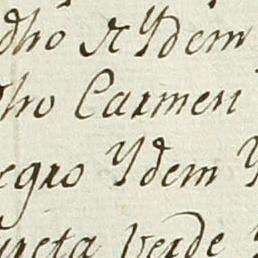 dho R Ydem
dho Carmen
egro Ydem Y
preta Verde